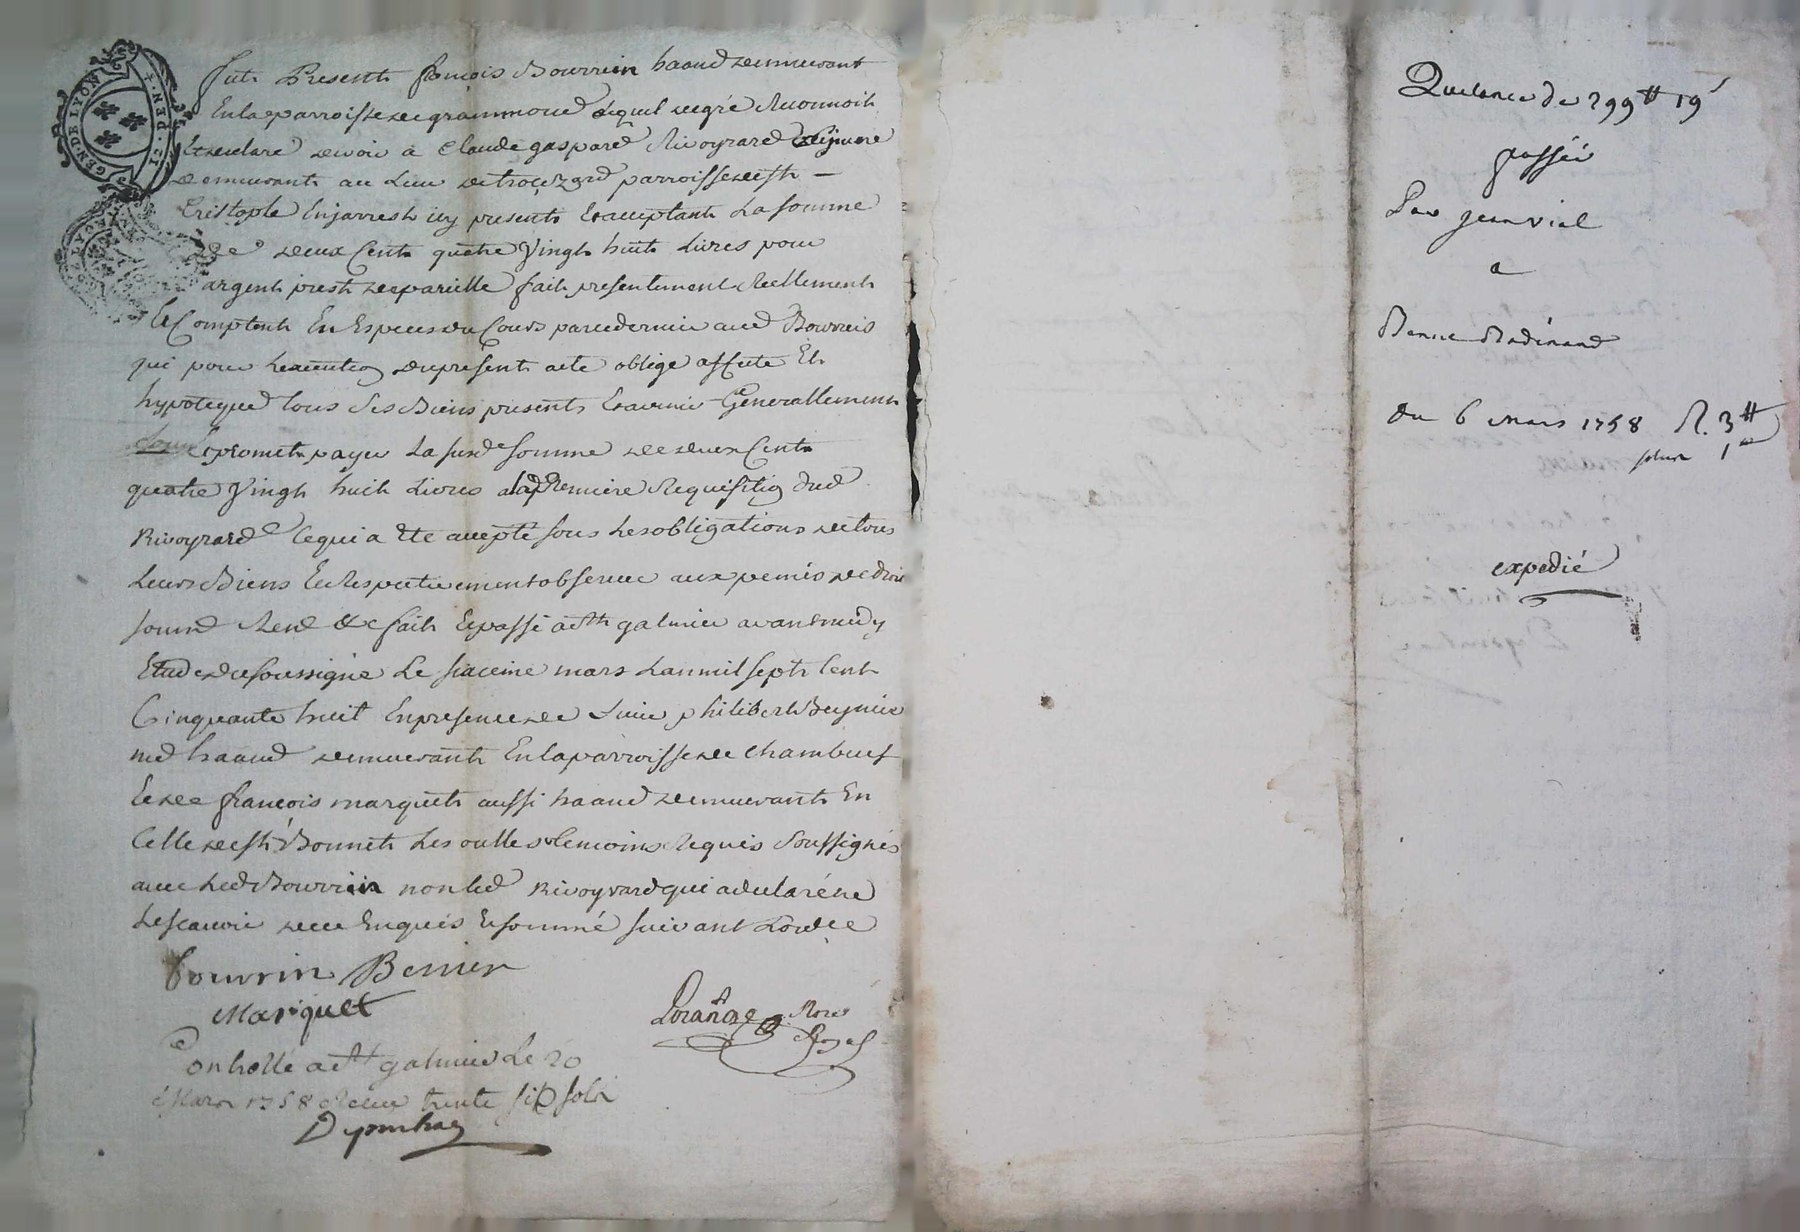 GEN. DE LYON
fut Present françois Bourrin habitt demeurant
En la parroisse de grammond lequel de gré Reconnoit
Et declare devoir a Claude gaspard Rivoyrard
demeurant au Lieu de parroisse de st
Cristople En jarrest icy present Et acceptant La somme
de deux Cents quatre Vingt huit Livres pour
argent prest de pareille fait presentement Reellement
Et Comptent En Especes du Cours par ce dernier aud Bourrin
qui pour du present acte oblige affecte Et
hypoteque tous Ses Biens presents Et avenir Generallement
promet payer La susd somme de deux Cents
quatre Vingt huit Livres a la premiere Requisition dud
Rivoyrard Ce qui a Eté accepté sous Les obligations de tous
Leurs Biens Et Respectivement observer aux peines de droit
soumis Ren &c fait Et passé a st galmier avant midy
Etude du soussigné Le sixieme mars L an mil sept Cent
Cinquante huit En presence de philibert
habitt demeurant En la parroisse de Chambeuf
Et de françois marquet aussi habitt demeurant En
Celle de st Bonnet Les oulles temoins Requis Soussignés
avec Led Bourrin non Led Rivoyrard qui a declaré ne
Le scavoir de ce Enquis Et sommé suivant L ordce
bourrin Bernier
Marquet
Controllé a st galmier Le 20
Mars 1758 Receu trente six sols
Quitance de 299tt 19s
passée
Par Jean Vial
a
du 6 Mars 1758 R. 3tt
expedié